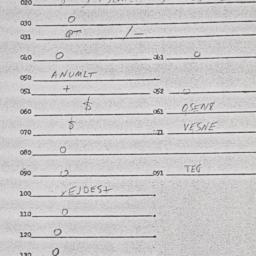 020
030 O
031 QT /-
040 O 041 O
050 ANUMLT
051 + 052 O
060 $ 061 OSEN8
070 $ 071 VESNE
080 O
090 O 091 TEG
100 VEJDES+
110 O
120 O
130 O